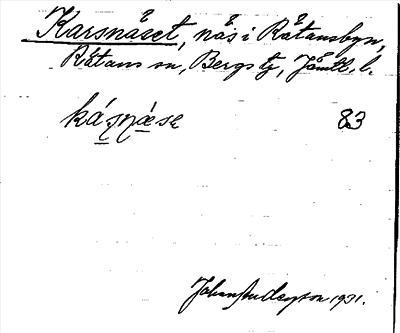 Karsnäset, näs i Rätansbyn,
Rätans sn, Bergs tg, Jämtl. l.
kás̱ṉæ̱se 83
Johan Andersson 1931.